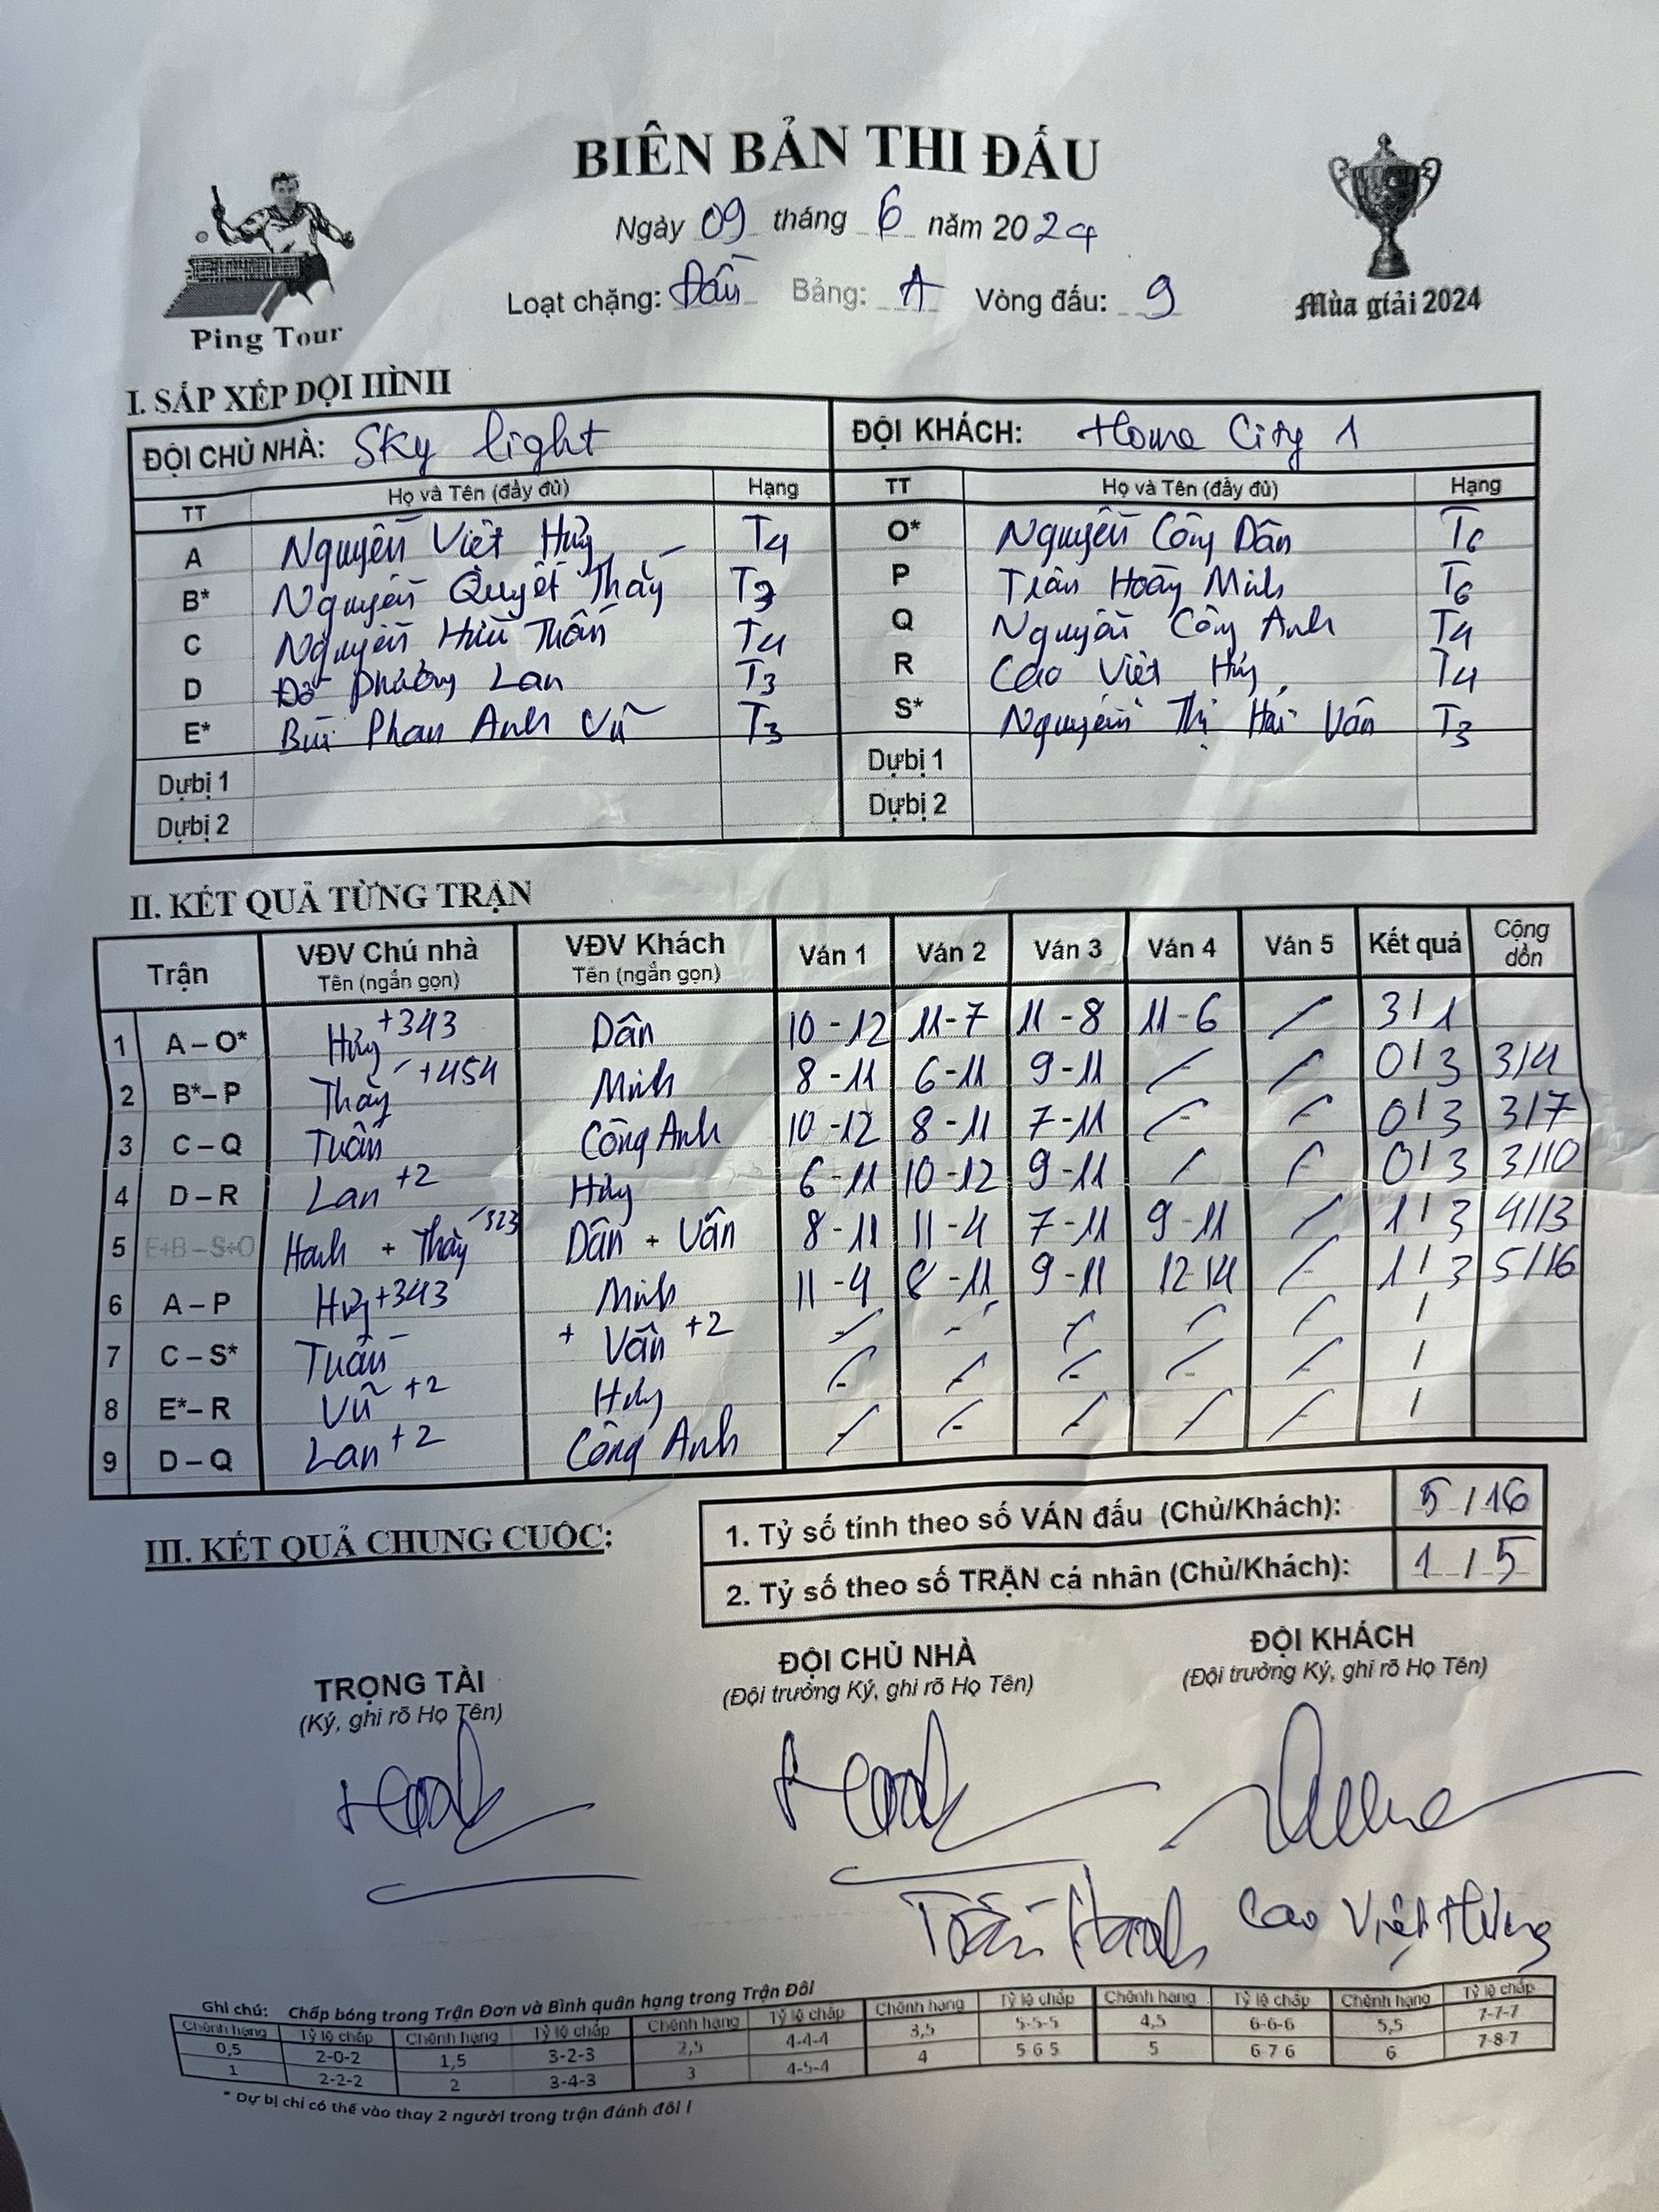 BIÊN BẢN THI ĐẤU
Ngày 09 tháng 6 năm 2024
Loạt chặng: Đấu Bảng: A Vòng đấu: 9
Ping Tour
Mùa giải 2024
I. SẮP XẾP ĐỘI HÌNH
ĐỘI CHỦ NHÀ: Sky light ĐỘI KHÁCH: Home City 1
TT Họ và Tên (đầy đủ) Hạng TT Họ và Tên (đầy đủ) Hạng
A Nguyễn Việt Hưng T4 O* Nguyễn Công Dân T6
B* Nguyễn Quyết Thắng T3 P Trần Hoàng Minh T6
C Nguyễn Hữu T4 Q Nguyễn Công Anh T4
D Đỗ Phương Lan T3 R Cao Việt Hưng T4
E* Bùi Phan Anh Vũ T3 S* Nguyễn Thị Hải Vân T3
Dự bị 1 Dự bị 1
Dự bị 2 Dự bị 2
II. KẾT QUẢ TỪNG TRẬN
Trận VĐV Chủ nhà Tên (ngắn gọn) VĐV Khách Tên (ngắn gọn) Ván 1 Ván 2 Ván 3 Ván 4 Ván 5 Kết quả Cộng dồn
1 A – O* Hưng +343 Dân 10-12 11-7 11-8 11-6 / 3/1
2 B* – P Thắng +454 Minh 8-11 6-11 9-11 / / 0/3 3/4
3 C – Q Tuấn Công Anh 10-12 8-11 7-11 / / 0/3 3/7
4 D – R Lan +2 Hưng 6-11 10-12 9-11 / / 0/3 3/10
5 E+B – S+O Hanh + Thắng 323 Dân + Vân 8-11 11-4 7-11 9-11 / 1/3 4/13
6 A – P Hưng +343 Minh 11-4 8-11 9-11 12-14 / 1/3 5/16
7 C – S* Tuấn + Vân +2 / / / / / /
8 E* – R Vũ +2 Hưng / / / / / /
9 D – Q Lan +2 Công Anh / / / / / /
III. KẾT QUẢ CHUNG CUỘC:
1. Tỷ số tính theo số VÁN đấu (Chủ/Khách): 5/16
2. Tỷ số theo số TRẬN cá nhân (Chủ/Khách): 1/5
TRỌNG TÀI ĐỘI CHỦ NHÀ ĐỘI KHÁCH
(Ký, ghi rõ Họ Tên) (Đội trưởng Ký, ghi rõ Họ Tên) (Đội trưởng Ký, ghi rõ Họ Tên)
Trần Hanh Cao Việt Hưng
Ghi chú: Chấp bóng trong Trận Đơn và Bình quân hạng trong Trận Đôi
Chênh hạng Tỷ lệ chấp Chênh hạng Tỷ lệ chấp Chênh hạng Tỷ lệ chấp Chênh hạng Tỷ lệ chấp Chênh hạng Tỷ lệ chấp Chênh hạng Tỷ lệ chấp
0,5 2-0-2 1,5 3-2-3 2,5 4-4-4 3,5 5-5-5 4,5 6-6-6 5,5 7-7-7
1 2-2-2 2 3-4-3 3 4-5-4 4 5 6 5 5 6-7 6 6 7-8-7
* Dự bị chỉ có thể vào thay 2 người trong trận đánh đôi !